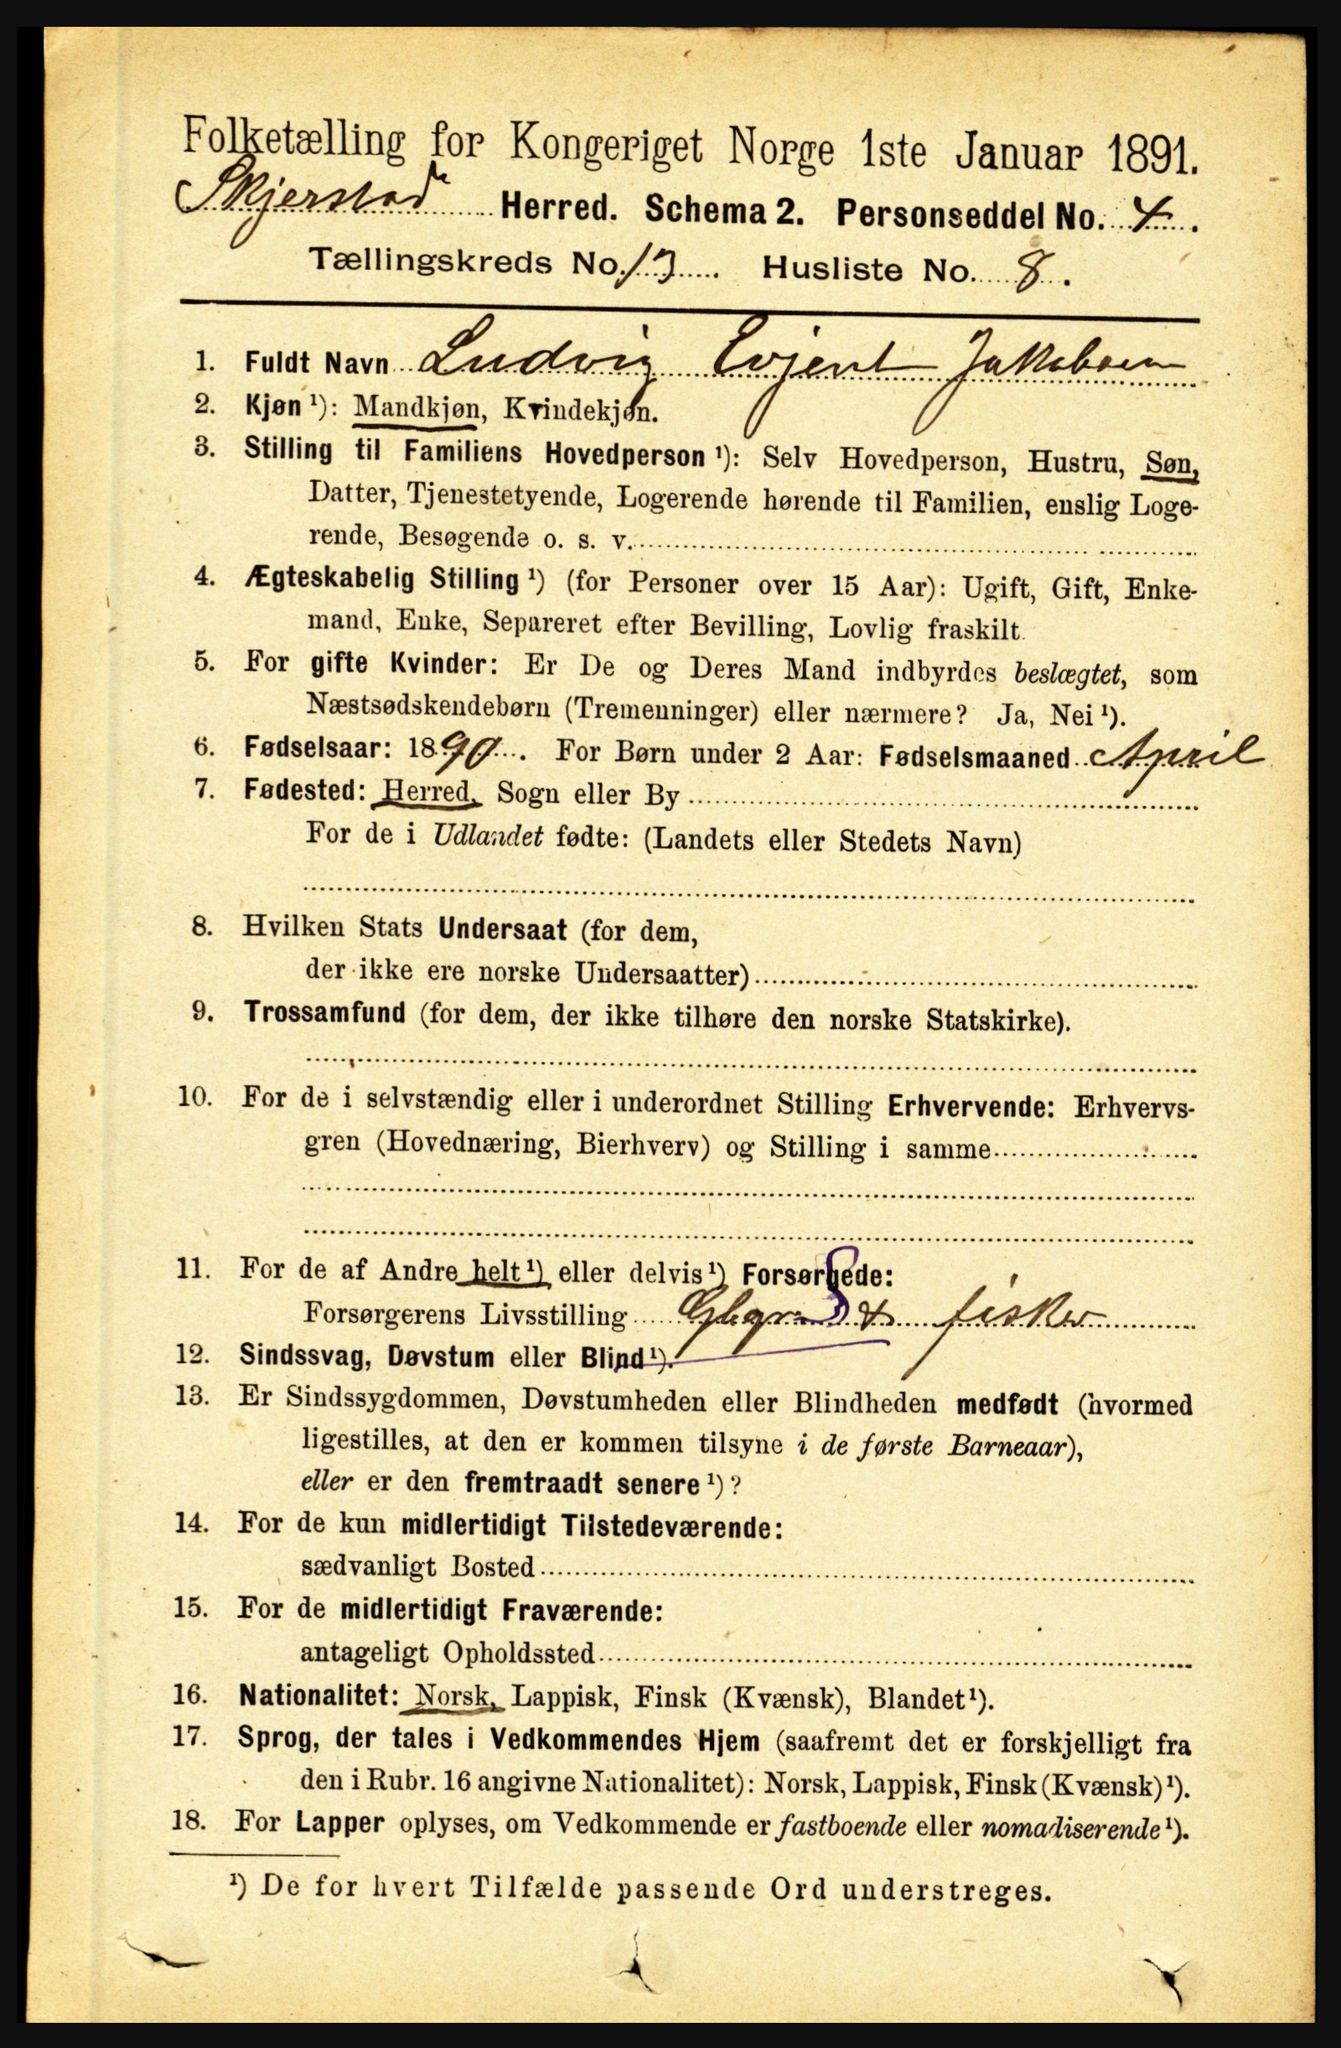 Folketælling for Kongeriget Norge 1ste Januar 1891.
Skjerstad Herred. Schema 2. Personseddel No. 4.
Tællingskreds No. 13. Husliste No. 8.
1. Fuldt Navn Ludvig Evjent Jakobsen
2. Kjøn ¹): Mandkjøn, Kvindekjøn.
3. Stilling til Familiens Hovedperson ¹): Selv Hovedperson, Hustru, Søn,
Datter, Tjenestetyende, Logerende hørende til Familien, enslig Loge-
rende, Besøgende o. s. v.
4. Ægteskabelig Stilling ¹) (for Personer over 15 Aar): Ugift, Gift, Enke-
mand, Enke, Separeret efter Bevilling, Lovlig fraskilt.
5. For gifte Kvinder: Er De og Deres Mand indbyrdes beslægtet, som
Næstsødskendebørn (Tremenninger) eller nærmere? Ja, Nei ¹).
6. Fødselsaar: 1890. For Børn under 2 Aar: Fødselsmaaned April
7. Fødested: Herred, Sogn eller By
For de i Udlandet fødte: (Landets eller Stedets Navn)
8. Hvilken Stats Undersaat (for dem,
der ikke ere norske Undersaatter)
9. Trossamfund (for dem, der ikke tilhøre den norske Statskirke).
10. For de i selvstændig eller i underordnet Stilling Erhvervende: Erhvervs-
gren (Hovednæring, Bierhverv) og Stilling i samme
11. For de af Andre helt ¹) eller delvis ¹) Forsørgede:
Forsørgerens Livsstilling & fisker
12. Sindssvag, Døvstum eller Blind ¹).
13. Er Sindssygdommen, Døvstumheden eller Blindheden medfødt (hvormed
ligestilles, at den er kommen tilsyne i de første Barneaar),
eller er den fremtraadt senere ¹)?
14. For de kun midlertidigt Tilstedeværende:
sædvanligt Bosted
15. For de midlertidigt Fraværende:
antageligt Opholdssted
16. Nationalitet: Norsk, Lappisk, Finsk (Kvænsk), Blandet ¹).
17. Sprog, der tales i Vedkommendes Hjem (saafremt det er forskjelligt fra
den i Rubr. 16 angivne Nationalitet): Norsk, Lappisk, Finsk (Kvænsk) ¹).
18. For Lapper oplyses, om Vedkommende er fastboende eller nomadiserende ¹).
¹) De for hvert Tilfælde passende Ord understreges.